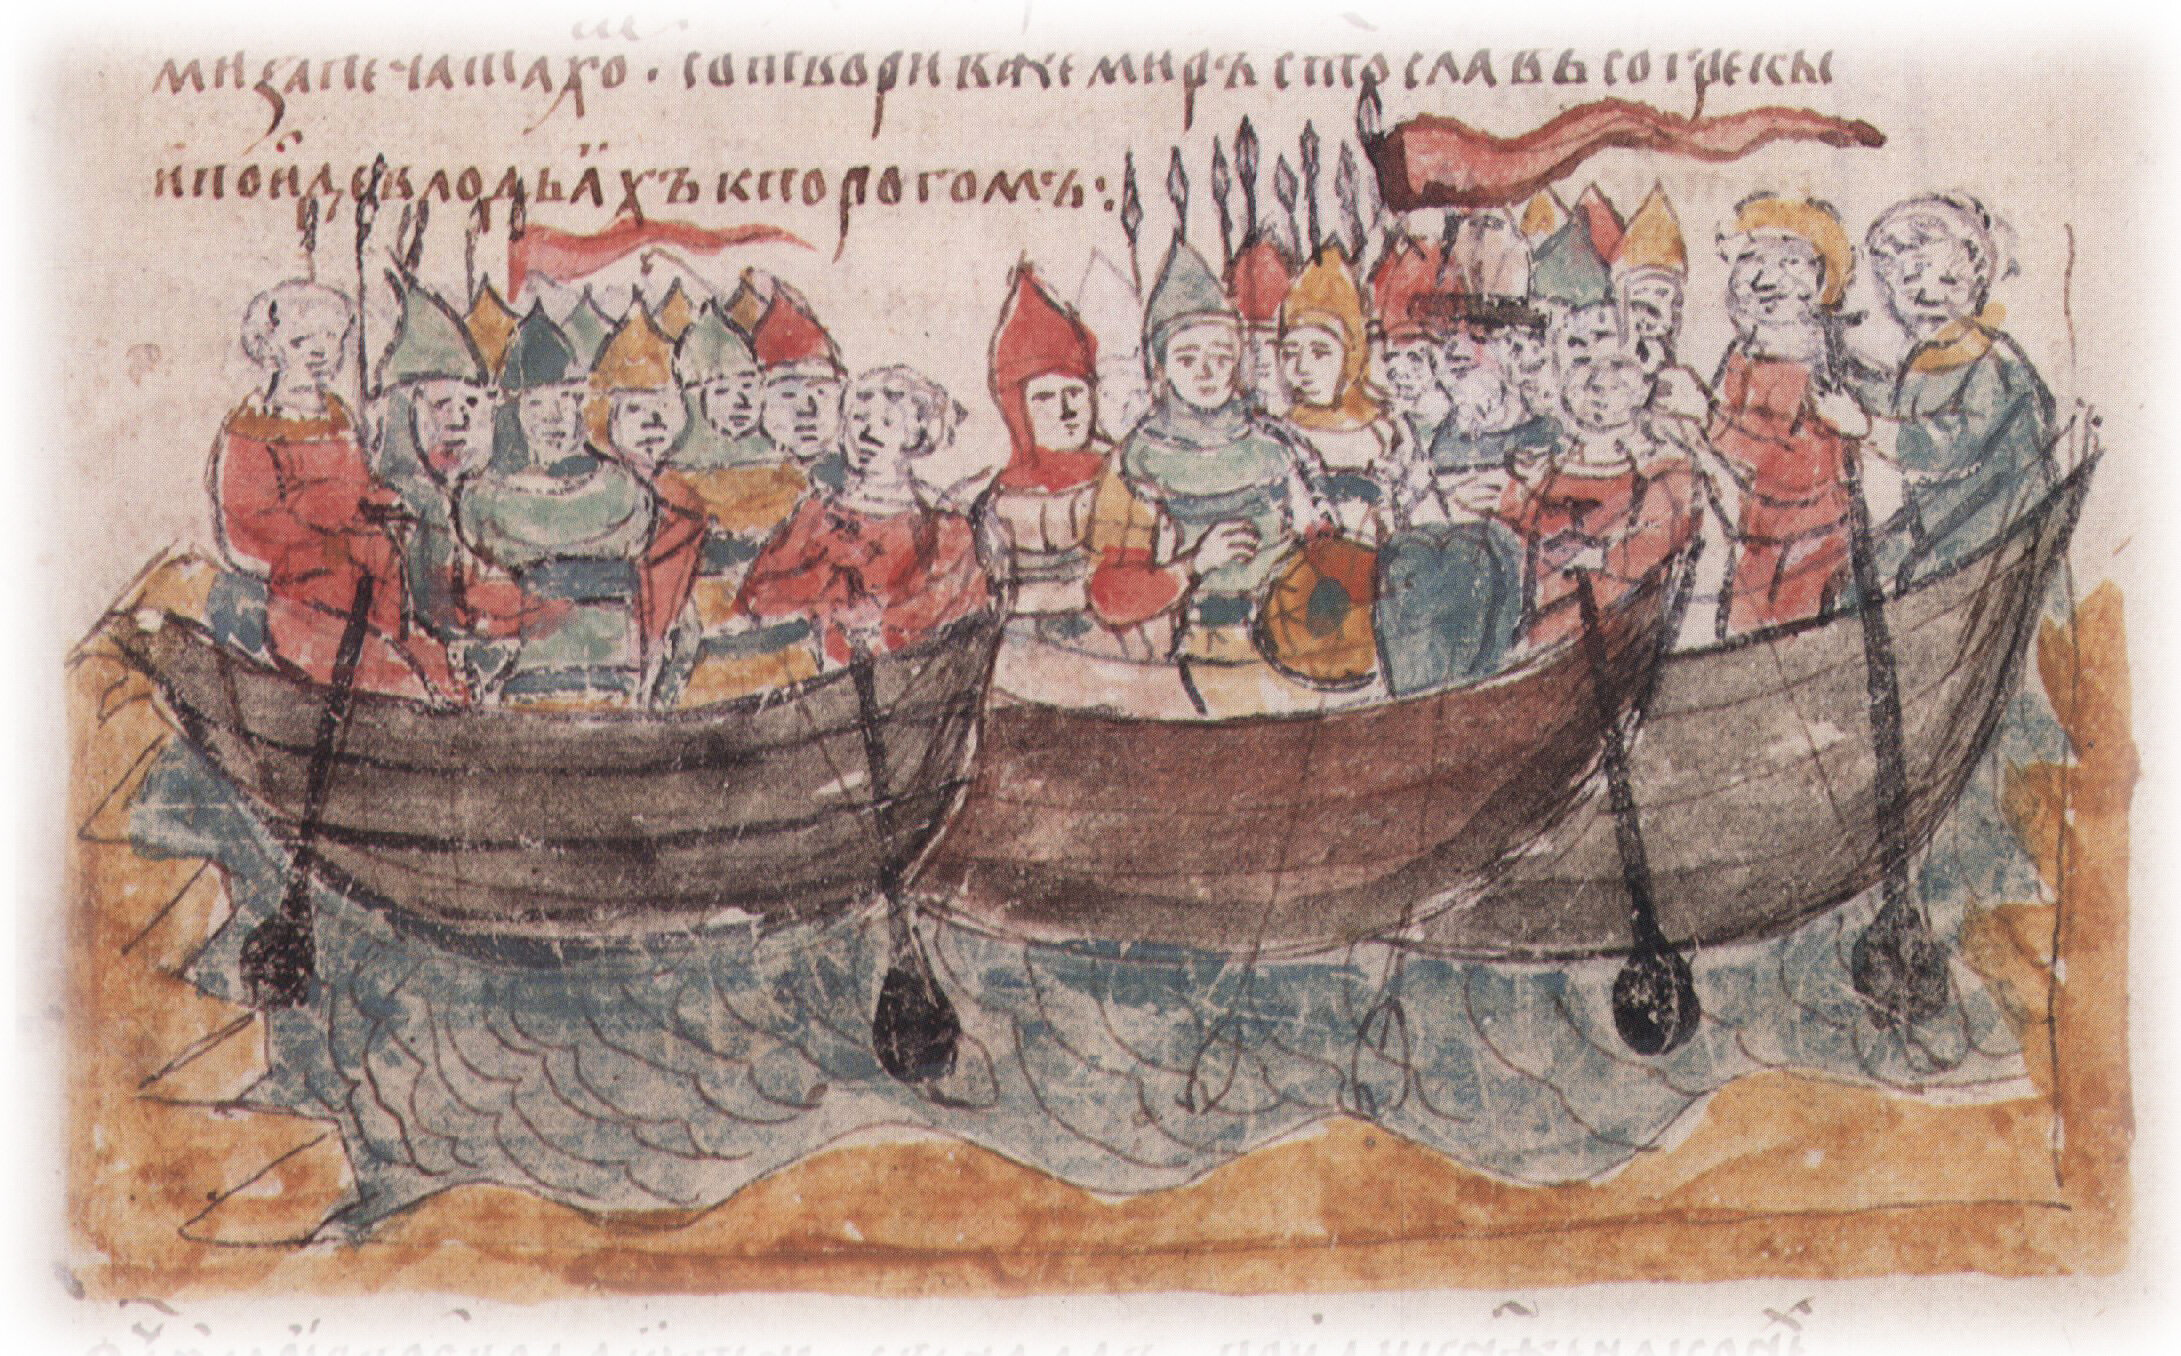 ми запечатахо · сотвори же миръ стославъ со греки
и поиде в лодьӓхъ к порогомъ :